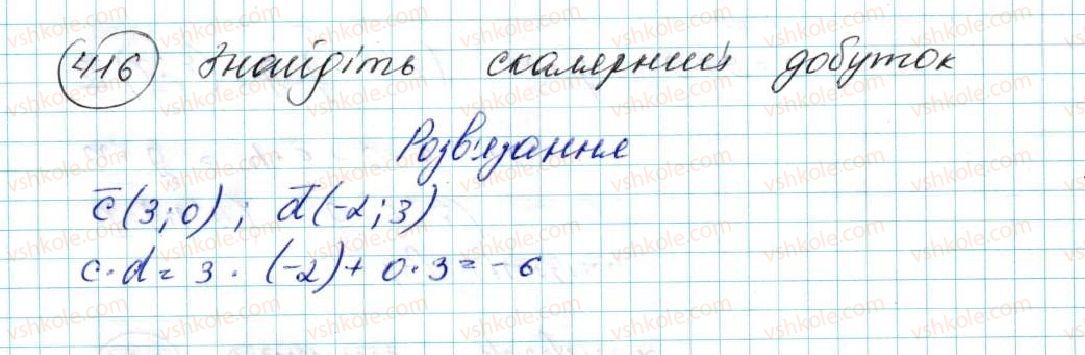 416 Знайдіть скалярний добуток
Розв'язання
c̅(3;0); d̅(-2;3)
c·d = 3·(-2)+0·3=-6